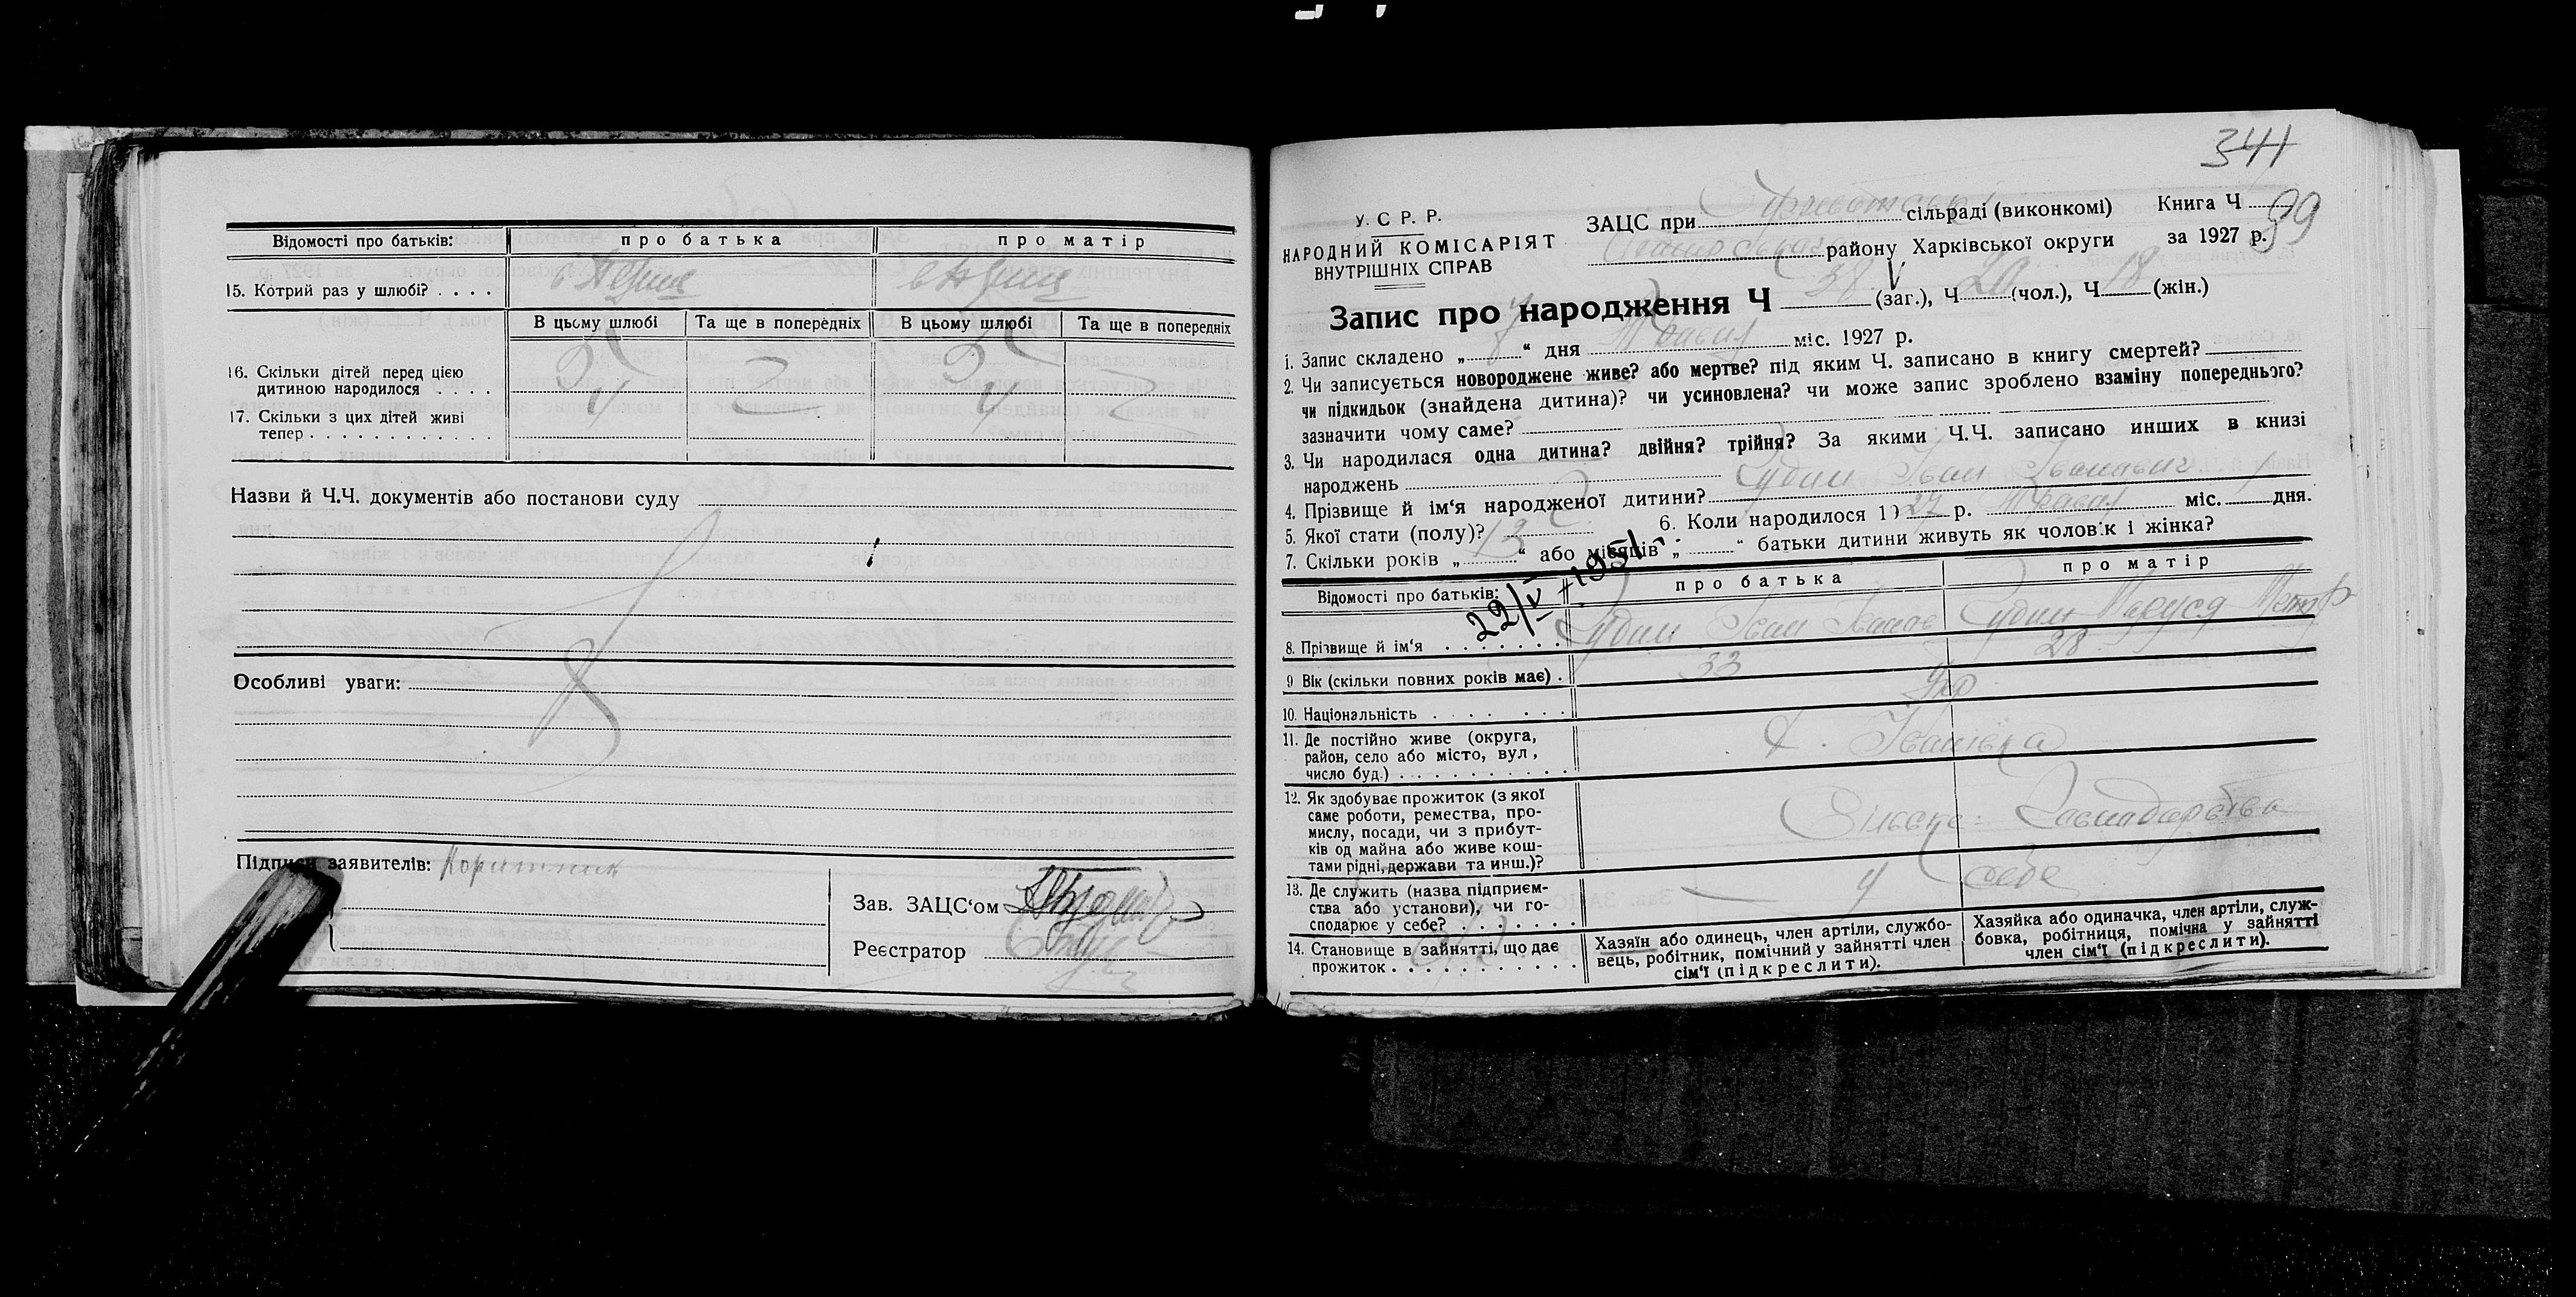 Відомості про батьків: про батька про матір
15. Котрий раз у шлюбі? . . . .
В цьому шлюбі Та ще в попередніх В цьому шлюбі Та ще в попередніх
16. Скільки дітей перед цією
дитиною народилося . . . .
17. Скільки з цих дітей живі 4 4
тепер . . . . . . . . . . . .
Назви й Ч.Ч. документів або постанови суду
Особливі уваги:
Підписи заявителів:
Зав. ЗАЦС‘ом
Реєстратор
341
У. С Р. Р.
НАРОДНИЙ КОМІСАРІЯТ
ВНУТРІШНІХ СПРАВ
ЗАЦС при сільраді (виконкомі) Книга Ч 99
району Харківської округи за 1927 р.
Запис про народження Ч 38 (заг.), Ч 20 (чол.), Ч 18 (жін.)
1. Запис складено „ “ дня Травня міс. 1927 р.
2. Чи записується новороджене живе? або мертве? під яким Ч. записано в книгу смертей?
чи підкидьок (знайдена дитина)? чи усиновлена? чи може запис зроблено взаміну попереднього?
зазначити чому саме?
3. Чи народилася одна дитина? двійня? трійня? За якими Ч.Ч. записано инших в книзі
народжень
4. Прізвище й ім‘я народженої дитини? Іван Іванович
5. Якої стати (полу)? 6. Коли народилося 19 27 р. Травня міс. 1 дня.
7. Скільки років „ 13 “ або місяців „ “ батьки дитини живуть як чоловік і жінка?
22/V-1951
Відомості про батьків: про батька про матір
8. Прізвище й ім‘я . . . . . . . Іван Іванов
9 Вік (скільки повних років має) . 33 28
10. Національність . . . . . . . Укр
11. Де постійно живе (округа,
район, село або місто, вул,
число буд.) . . . . . . . . . . Х. Іванівка
12. Як здобуває прожиток (з якої
саме роботи, ремества, про-
мислу, посади, чи з прибут-
ків од майна або живе кош-
тами рідні, держави та инш.)?
Сільське Господарство
13. Де служить (назва підприєм-
ства або установи), чи го-
сподарює у себе? . . . . . . . У себе
14. Становище в зайнятті, що дає
прожиток . . . . . . . . . . .
Хазяїн або одинець, член артіли, службо-
вець, робітник, помічний у зайнятті член
сім‘ї (підкреслити).
Хазяйка або одиначка, член артіли, служ-
бовка, робітниця, помічна у зайнятті
член сім‘ї (підкреслити).